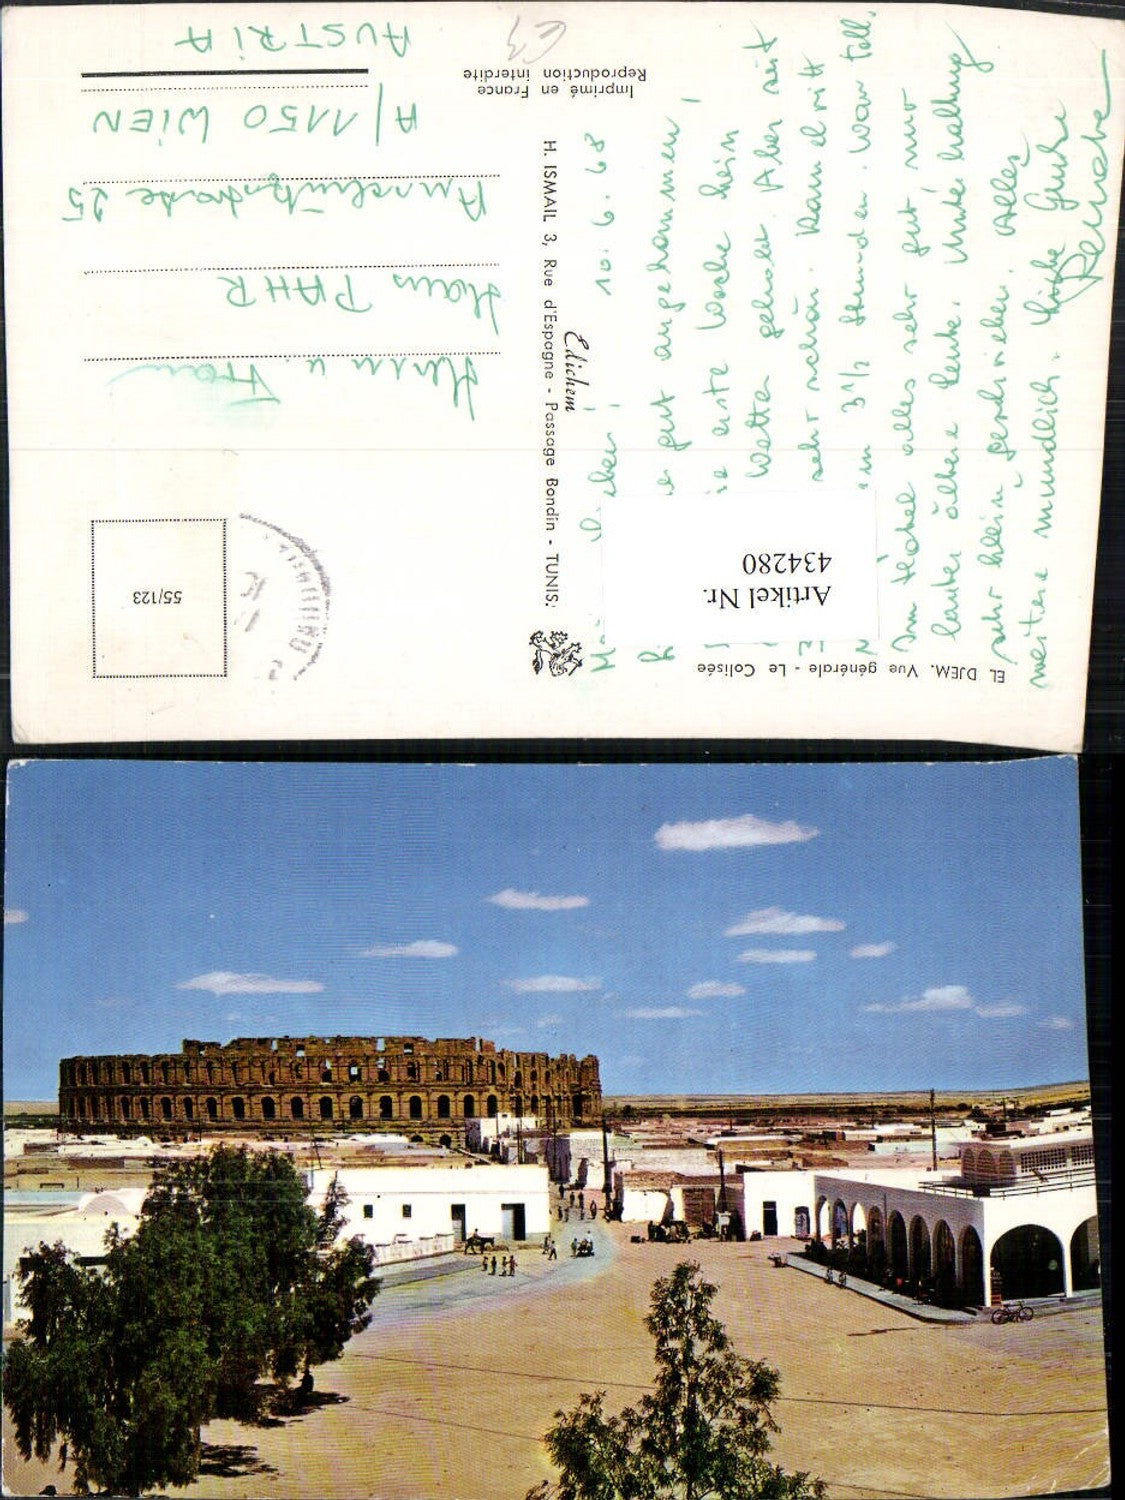 EL DJEM. Vue générale - Le Colisée
10. 6. 68
gut angekommen,
erste Woche kein
Wetter gehabt. Aber seit
sehr schön. Kamelritt
3 1/2 Stunden. War toll.
Im Hotel alles sehr gut, nur
lauter ältere Leute. Unterhaltung
sehr klein geschrieben. Alles
weitere mündlich. Liebe Grüße
Renate
Artikel Nr.
434280
Edichem
H. ISMAIL 3, Rue d'Espagne - Passage Bondin - TUNIS
Imprimé en France
Reproduction interdite
55/123
Herrn u. Frau
Hans PAHR
25
A/1150 WIEN
AUSTRIA